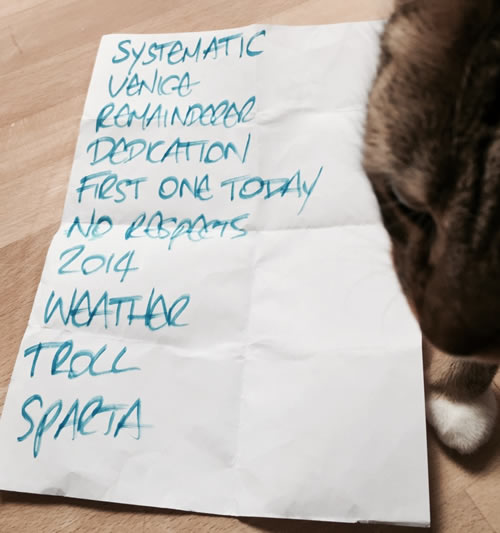 SYSTEMATIC
VENICE
REMAINDERER
DEDICATION
FIRST ONE TODAY
NO RESPECTS
2014
WEATHER
TROLL
SPARTA